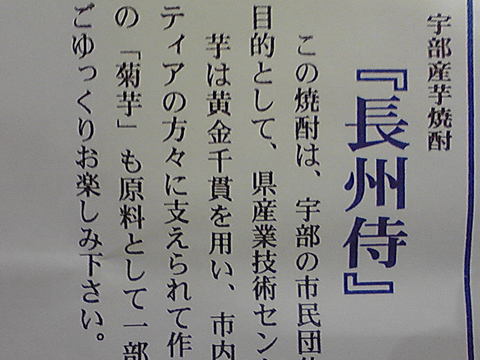 宇部産芋焼酎
『長州侍』
この焼酎は、宇部の市民団体
目的として、県産業技術センタ
芋は黄金千貫を用い、市内
ティアの方々に支えられて作
の「菊芋」も原料として一部
ごゆっくりお楽しみ下さい。